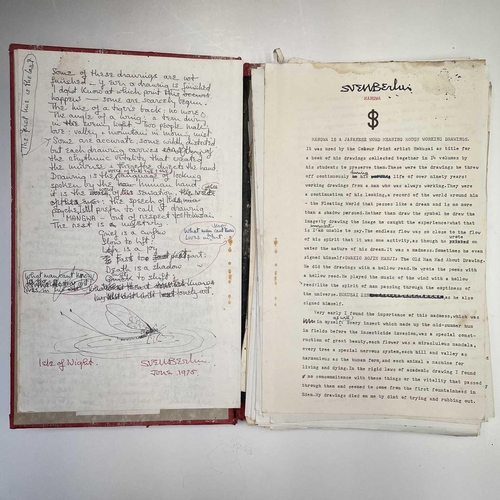 The first line is the last
Some of these drawings are not
finished — if ever a drawing is finished
I don't know at which point this occurs
happen — some are scarcely begun.
The line of a tigers back: no more.
The angle of a wing: a tern
in the evening light Two people make
love: valley, mountain in moon, mist
Some are accurate, some wildly distorted
but each drawing carries
the rhythmic vitality that created
the universe & thereby directs the hand
Drawing is the language of looking
spoken by the human hand
it is the of sensation,
the speech of
psyche, I prefer to call it drawing
— MANGWA — out of respect for Hokusai
The rest is a mystery
Quel is a curfew
Slow to lift:
Look is a joy
To part:
Death is a shadow
Quick to shift;
Isle of Wight.
SVEN Berlin
June 1975
SVEN Berlin
MANGWA
$
MANGWA IS A JAPANESE WORD MEANING GOUTS WORKING DRAWINGS.
It was used by the Colour Print artist Hokusai as title for
a book of his drawings collected together in 14 volumes by
his students to preserve them. These were the drawings he threw
off continuously life of over ninety years:
working drawings from a man who was always working. They were
a continuation of his looking, a record of the world around him
- the Fleeting World that passes like a dream and is no more
than a shadow pursued. Rather than draw the symbol he drew the
image: by drawing the image he caught the experience: what that
is I'm unable to say. The endless flow was so close to the flow
of his spirit that it was one activity, as though he wrote on
water the nature of his dream. It was a madness. Sometimes he even
signed himself: GWAKIO ROJIN MANJI: The Old Man Mad About Drawing.
He did the drawings with a hollow reed. He wrote the poems with
a hollow reed. He played the music of the wind with a hollow
reed: the spirit of man passing through the emptiness of
the universe. HOKUSAI as he also
signed himself.
Very early I found the importance of this madness, which was
in myself. Every insect which made up the mid-summer hum
in fields before the insecticide invasion, was a special const-
ruction of great beauty, each flower was a miraculous mandala,
every tree a special nervous system, each hill and valley as
harmonious as the human form, and each animal a machine for
living and dying. In the rigid laws of academic drawing I found
no consonance with these things or the vitality that passed
through them and seemed to come from the first fountainhead in
Eden. My drawings died on me by dint of trying and rubbing out.